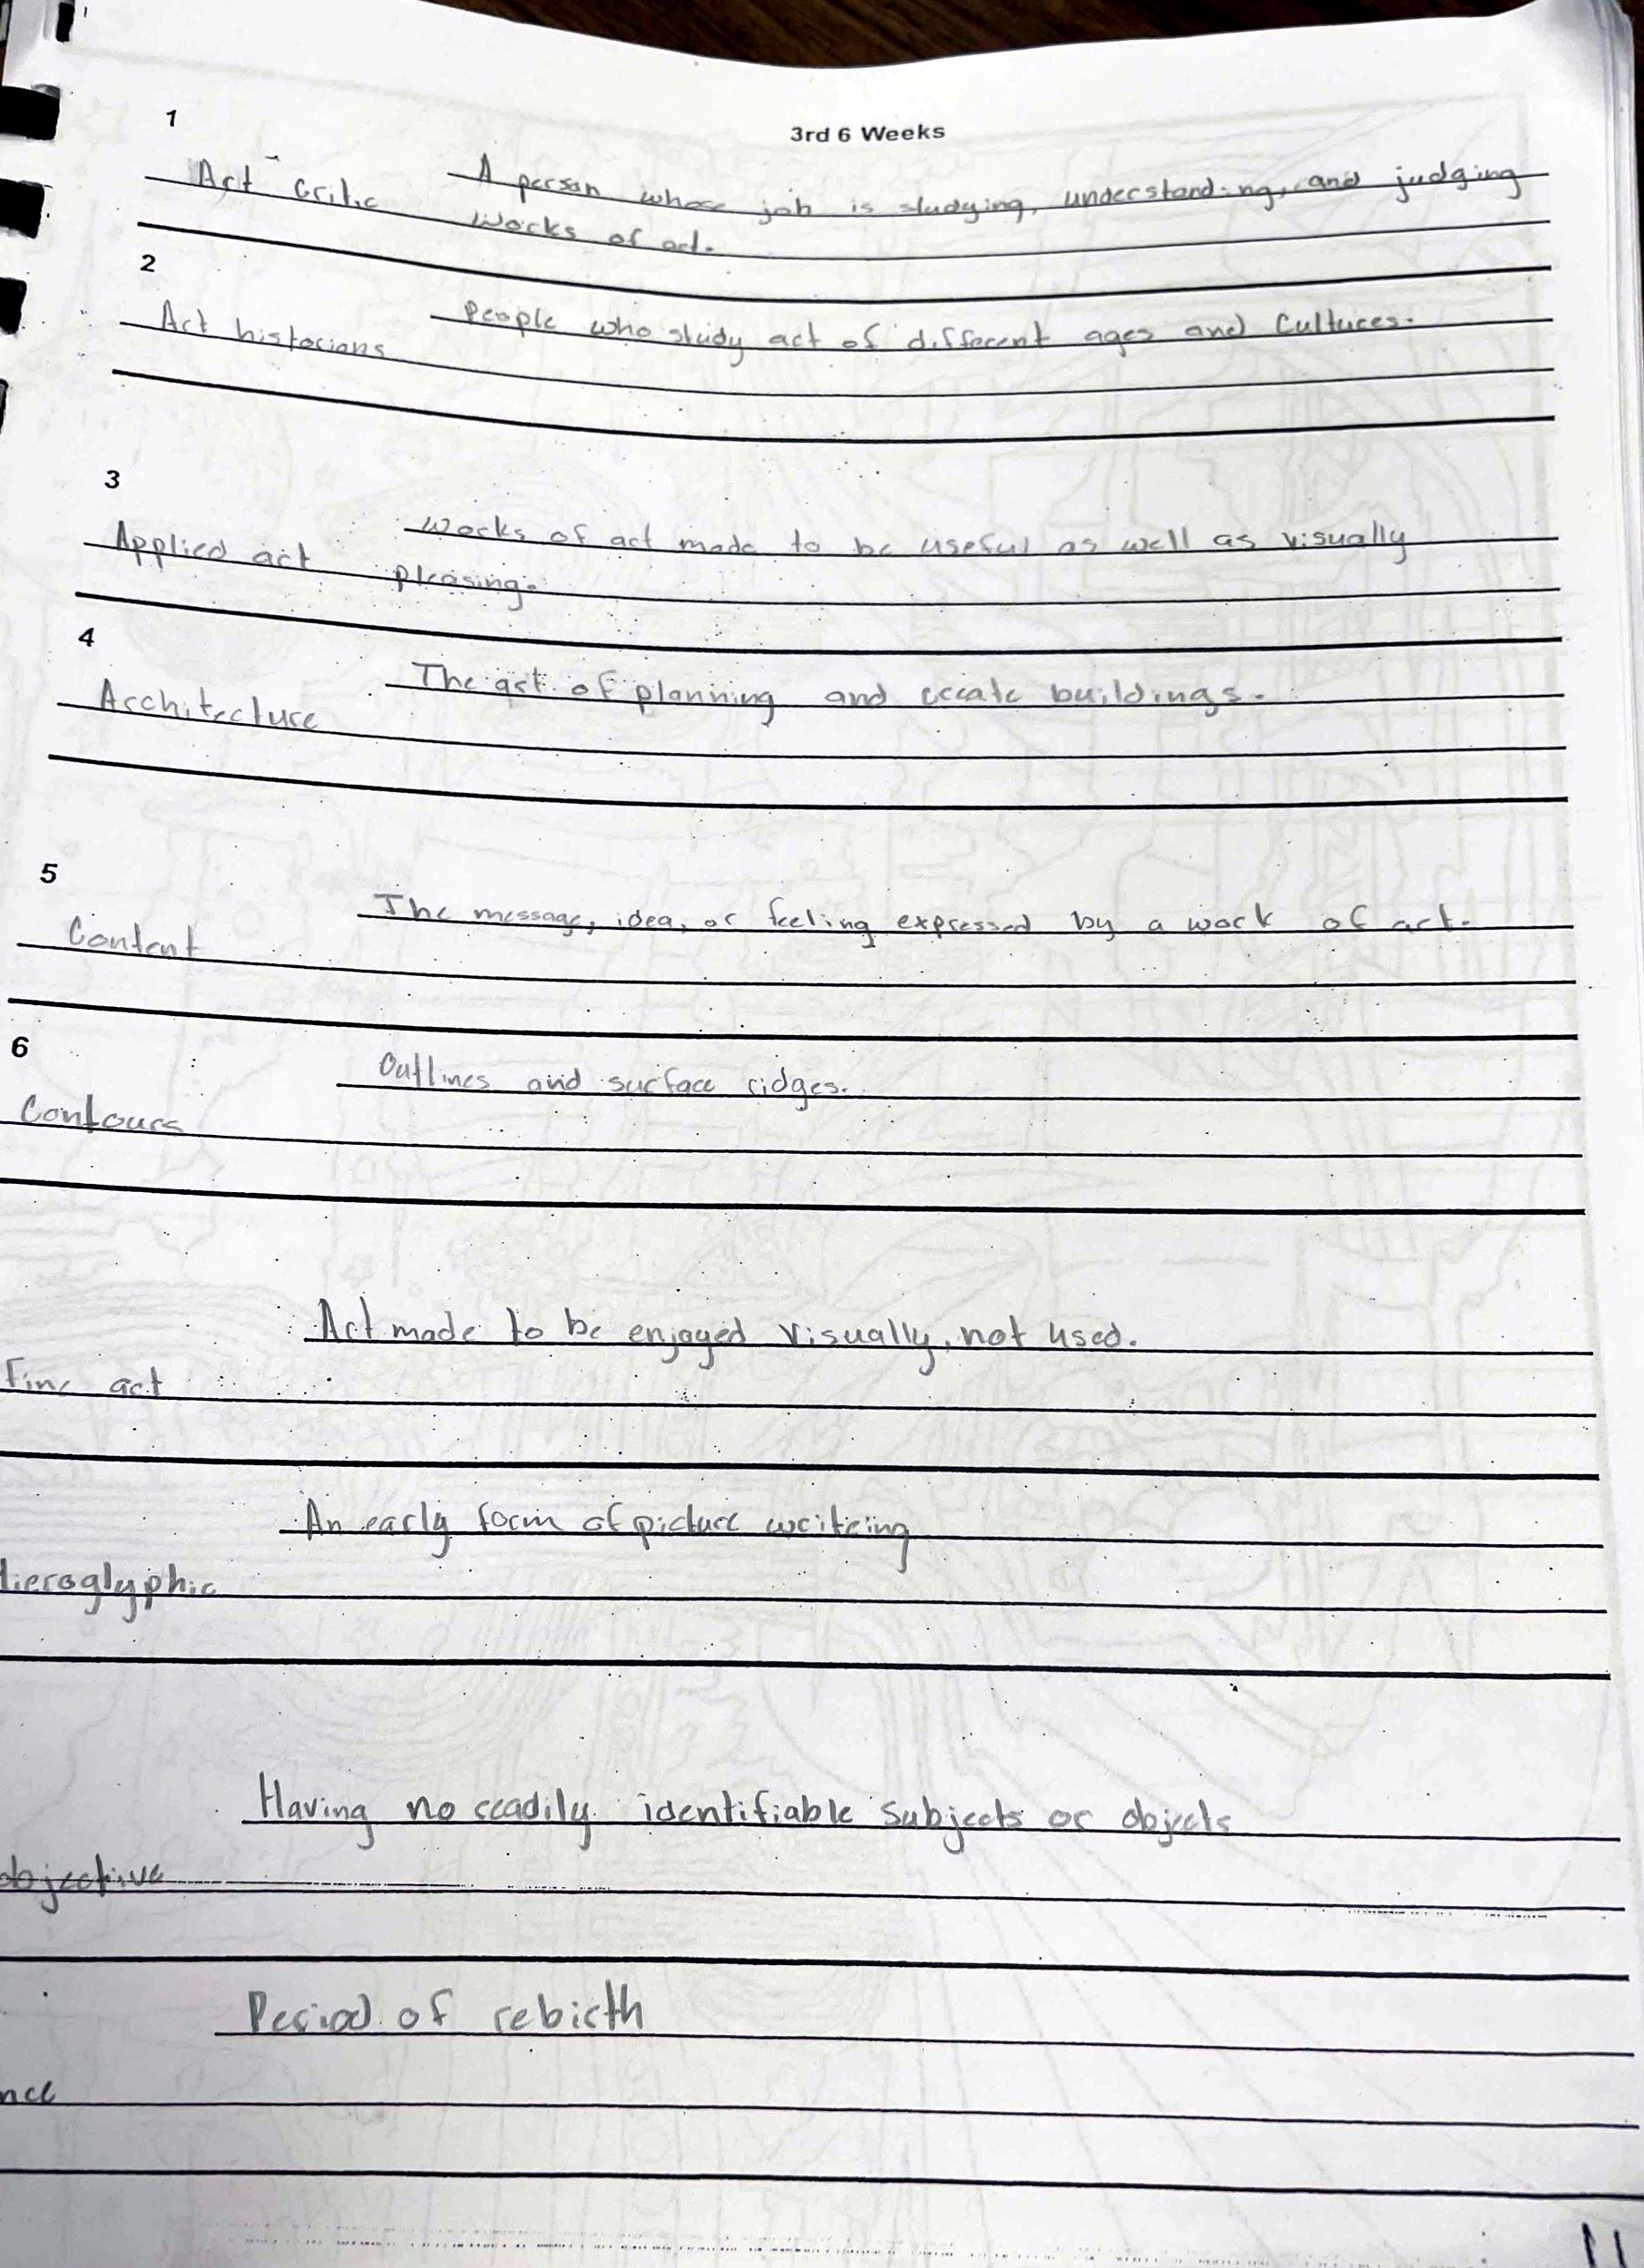 1
3rd 6 Weeks
Art critic
A person whose job is studying, understanding, and judging
works of art.
2
Art historians
People who study art of different ages and Cultures.
3
Applied art
works of art made to be useful as well as visually
pleasing.
4
Architecture
The art of planning and create buildings.
5
Content
The message, idea, or feeling expressed by a work of art.
6
Contours
Outlines and surface ridges.
Art made to be enjoyed visually, not used.
Fine art
An early form of picture writeing
Hieroglyphic
Having no readily identifiable subjects or objects
objective
Period of rebirth
nce